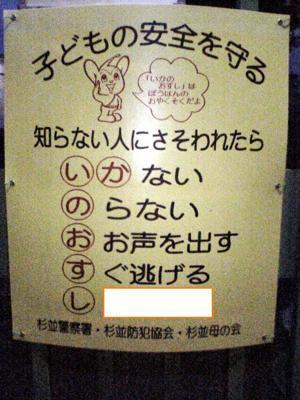 子どもの安全を守る
「いかの
おすし」は
ぼうはんの
おやくそくだよ
知らない人にさそわれたら
いかない
のらない
おお声を出す
すぐ逃げる
し
杉並警察署・杉並防犯協会・杉並母の会